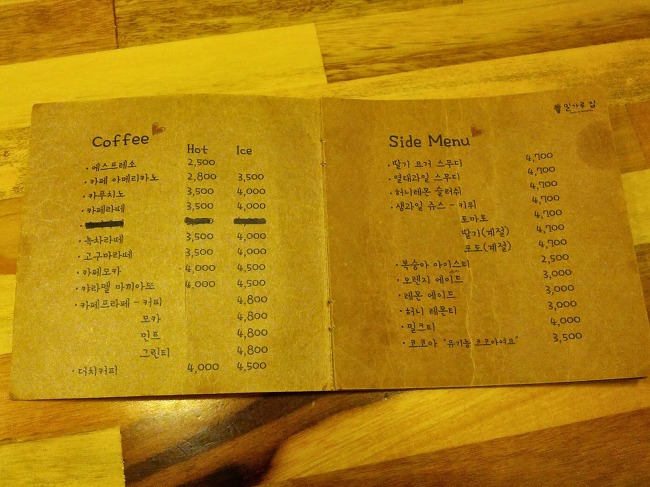 Coffee
Hot Ice
· 에스프레소 2,500
· 카페 아메리카노 2,800 3,500
· 카푸치노 3,500 4,000
· 카페라떼 3,500 4,000
· 녹차라떼 3,500 4,000
· 고구마라떼 3,500 4,000
· 카페모카 4,000 4,500
· 카라멜 마끼아또 4,000 4,500
· 카페프라페 - 커피 4,800
모카 4,800
민트 4,800
그린티 4,800
· 더치커피 4,000 4,500
밀가루 집
Side Menu
· 딸기 요거 스무디 4,700
· 열대과일 스무디 4,700
· 허니레몬 슬러쉬 4,700
· 생과일 쥬스 - 키위 4,700
토마토 4,700
딸기(계절) 4,700
포도(계절) 4,700
· 복숭아 아이스티 2,500
· 오렌지 에이드 3,000
· 레몬 에이드 3,000
· 허니 레몬티 3,000
· 밀크티 4,000
· 코코아 "유기농 코코아여요" 3,500